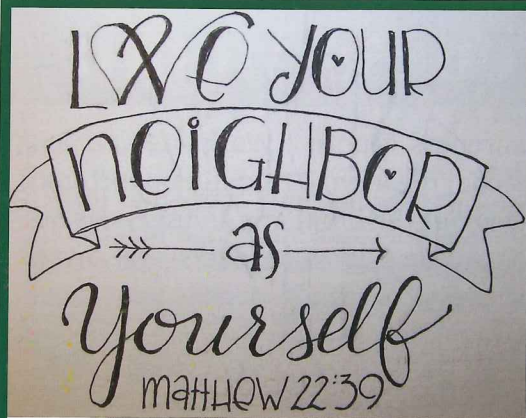 LOVE YOUR
NEIGHBOR
as
Yourself
matthew 22:39